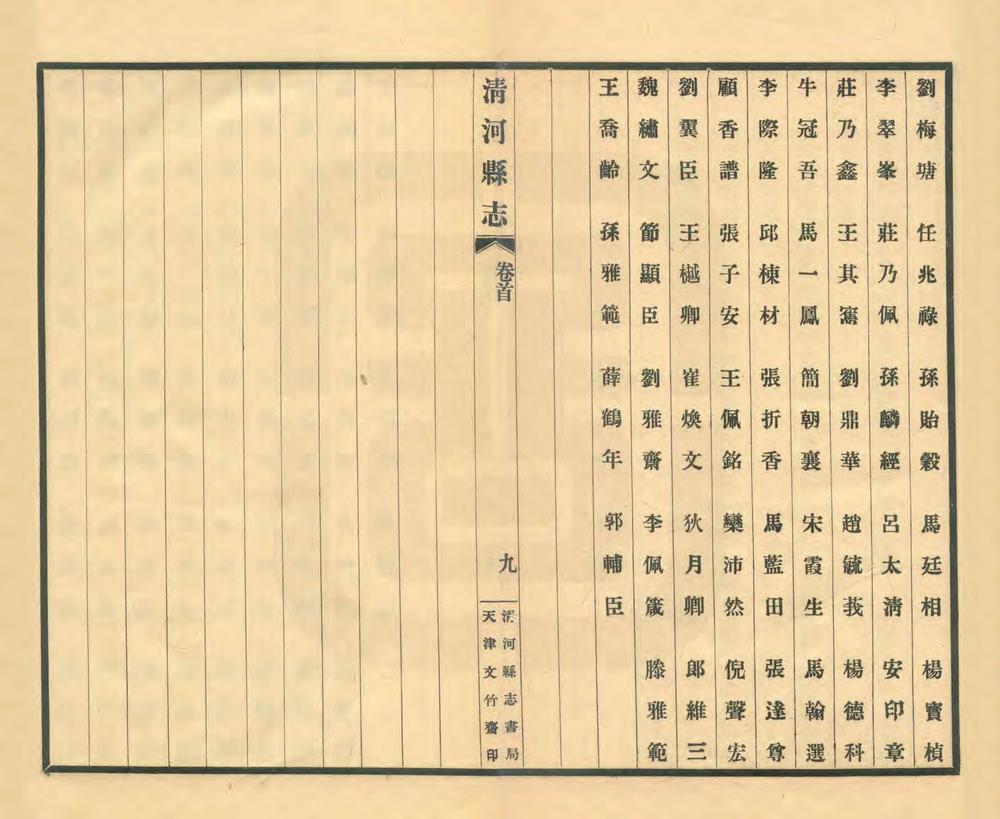 劉梅塘 任兆祿 孫貽穀 馬廷相 楊寶楨
李翠峯 莊乃佩 孫麟經 呂太淸 安印章
莊乃鑫 王其濬 劉鼎華 趙毓莪 楊德科
牛冠吾 馬一鳳 簡朝襄 宋霞生 馬翰選
李際隆 邱棟材 張折香 馬藍田 張達尊
顧香譜 張子安 王佩銘 欒沛然 倪聲宏
劉翼臣 王樾卿 崔煥文 狄月卿 郎維三
魏繡文 節顯臣 劉雅齋 李佩箴 滕雅範
王喬齡 孫雅範 薛鶴年 郭輔臣
淸河縣志 卷首 九
淸河縣志書局
天津文竹齋印